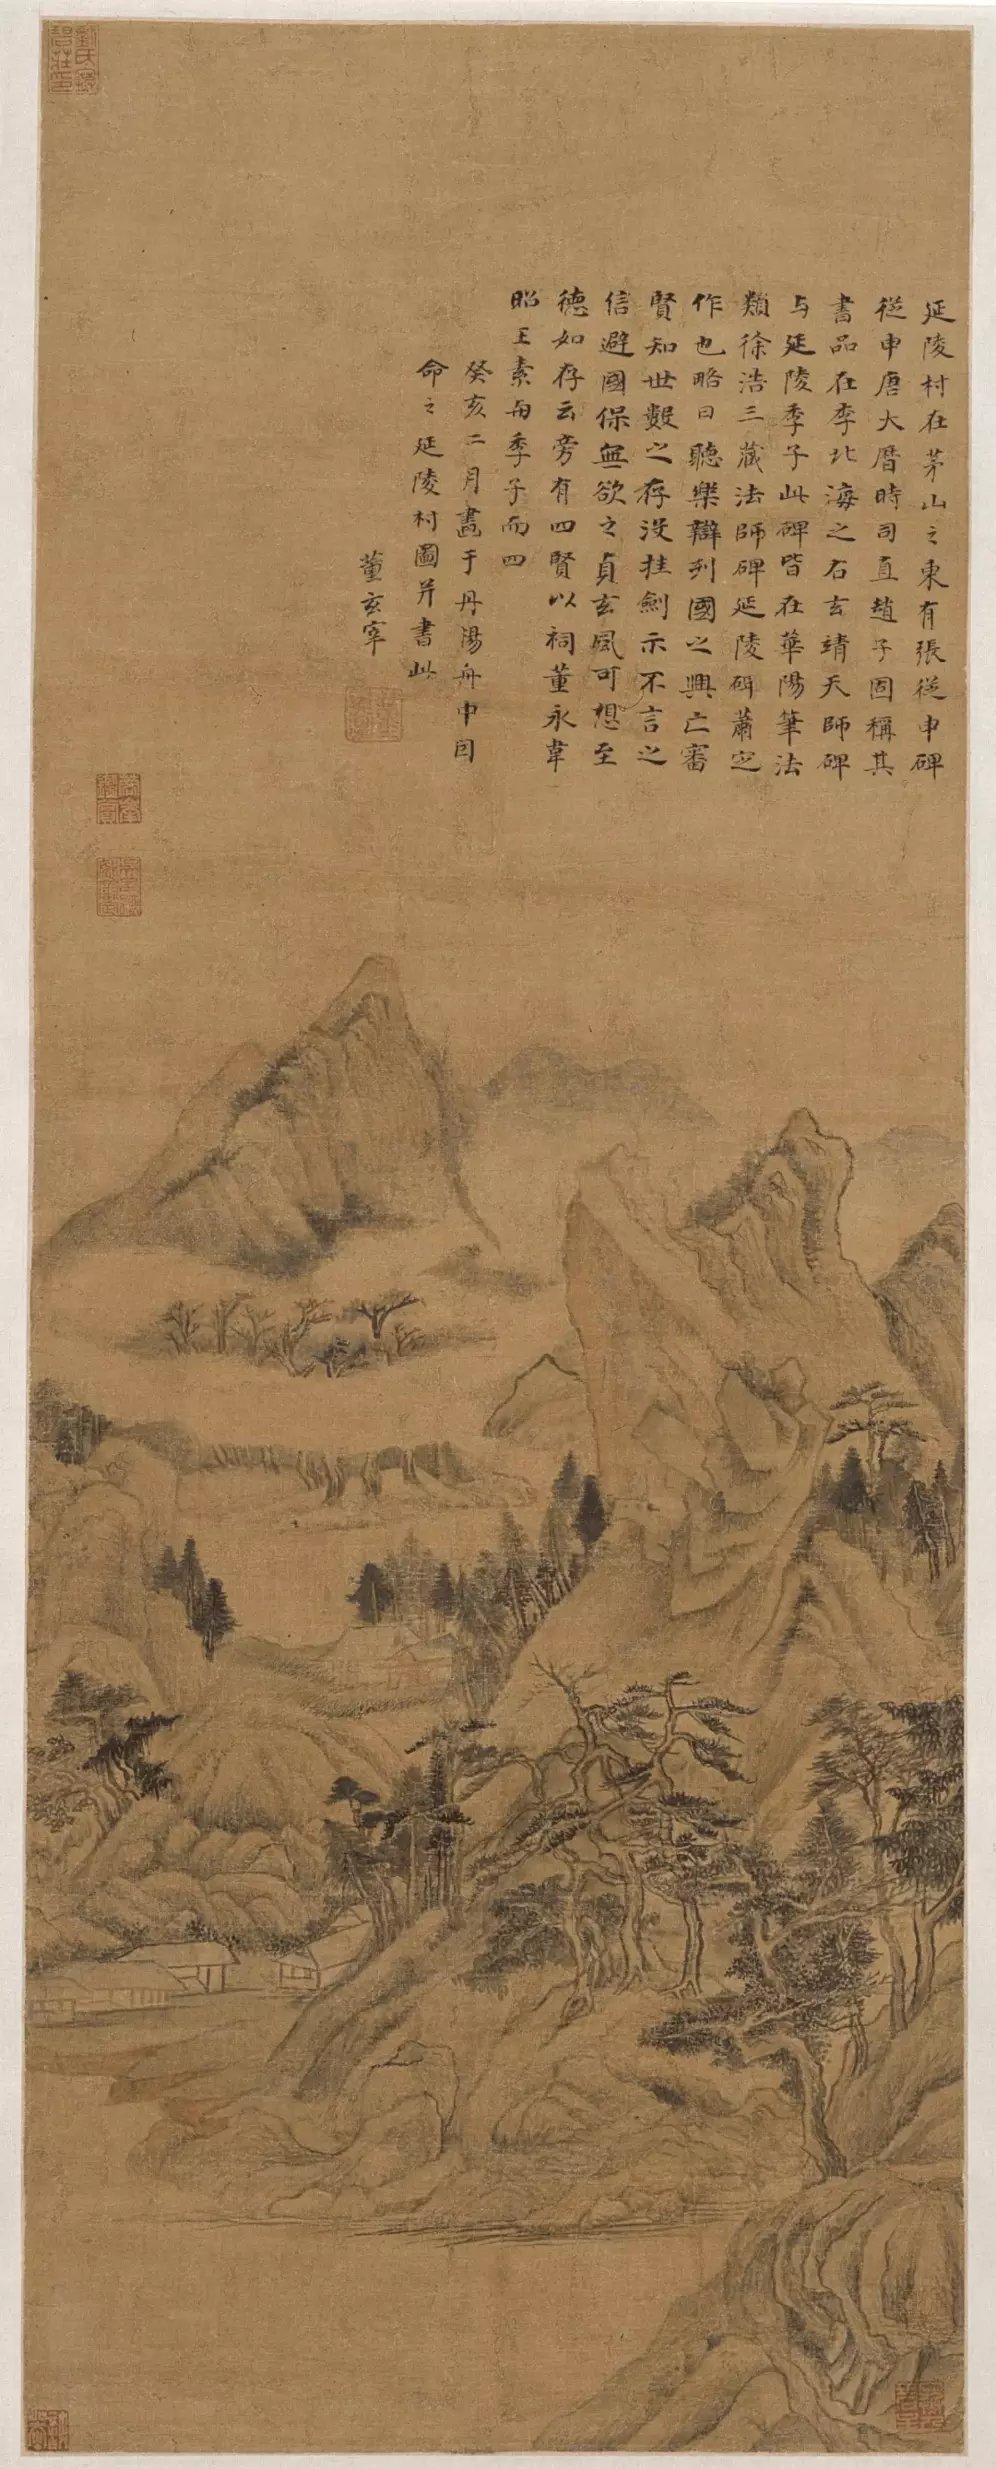 延陵村在茅山之東有張從申碑
從申唐大曆時司直趙子固稱其
書品在李北海之右玄靖天師碑
与延陵季子此碑皆在華陽筆法
類徐浩三藏法師碑延陵碑蕭定
作也略曰聽樂辯列國之興亡審
賢知世數之存沒挂劍示不言之
信避國保無欲之貞玄風可想至
德如存云旁有四賢以祠董永韋
昭王素与季子而四
癸亥二月畫于丹陽舟中因
命之延陵村圖并書此
董玄宰